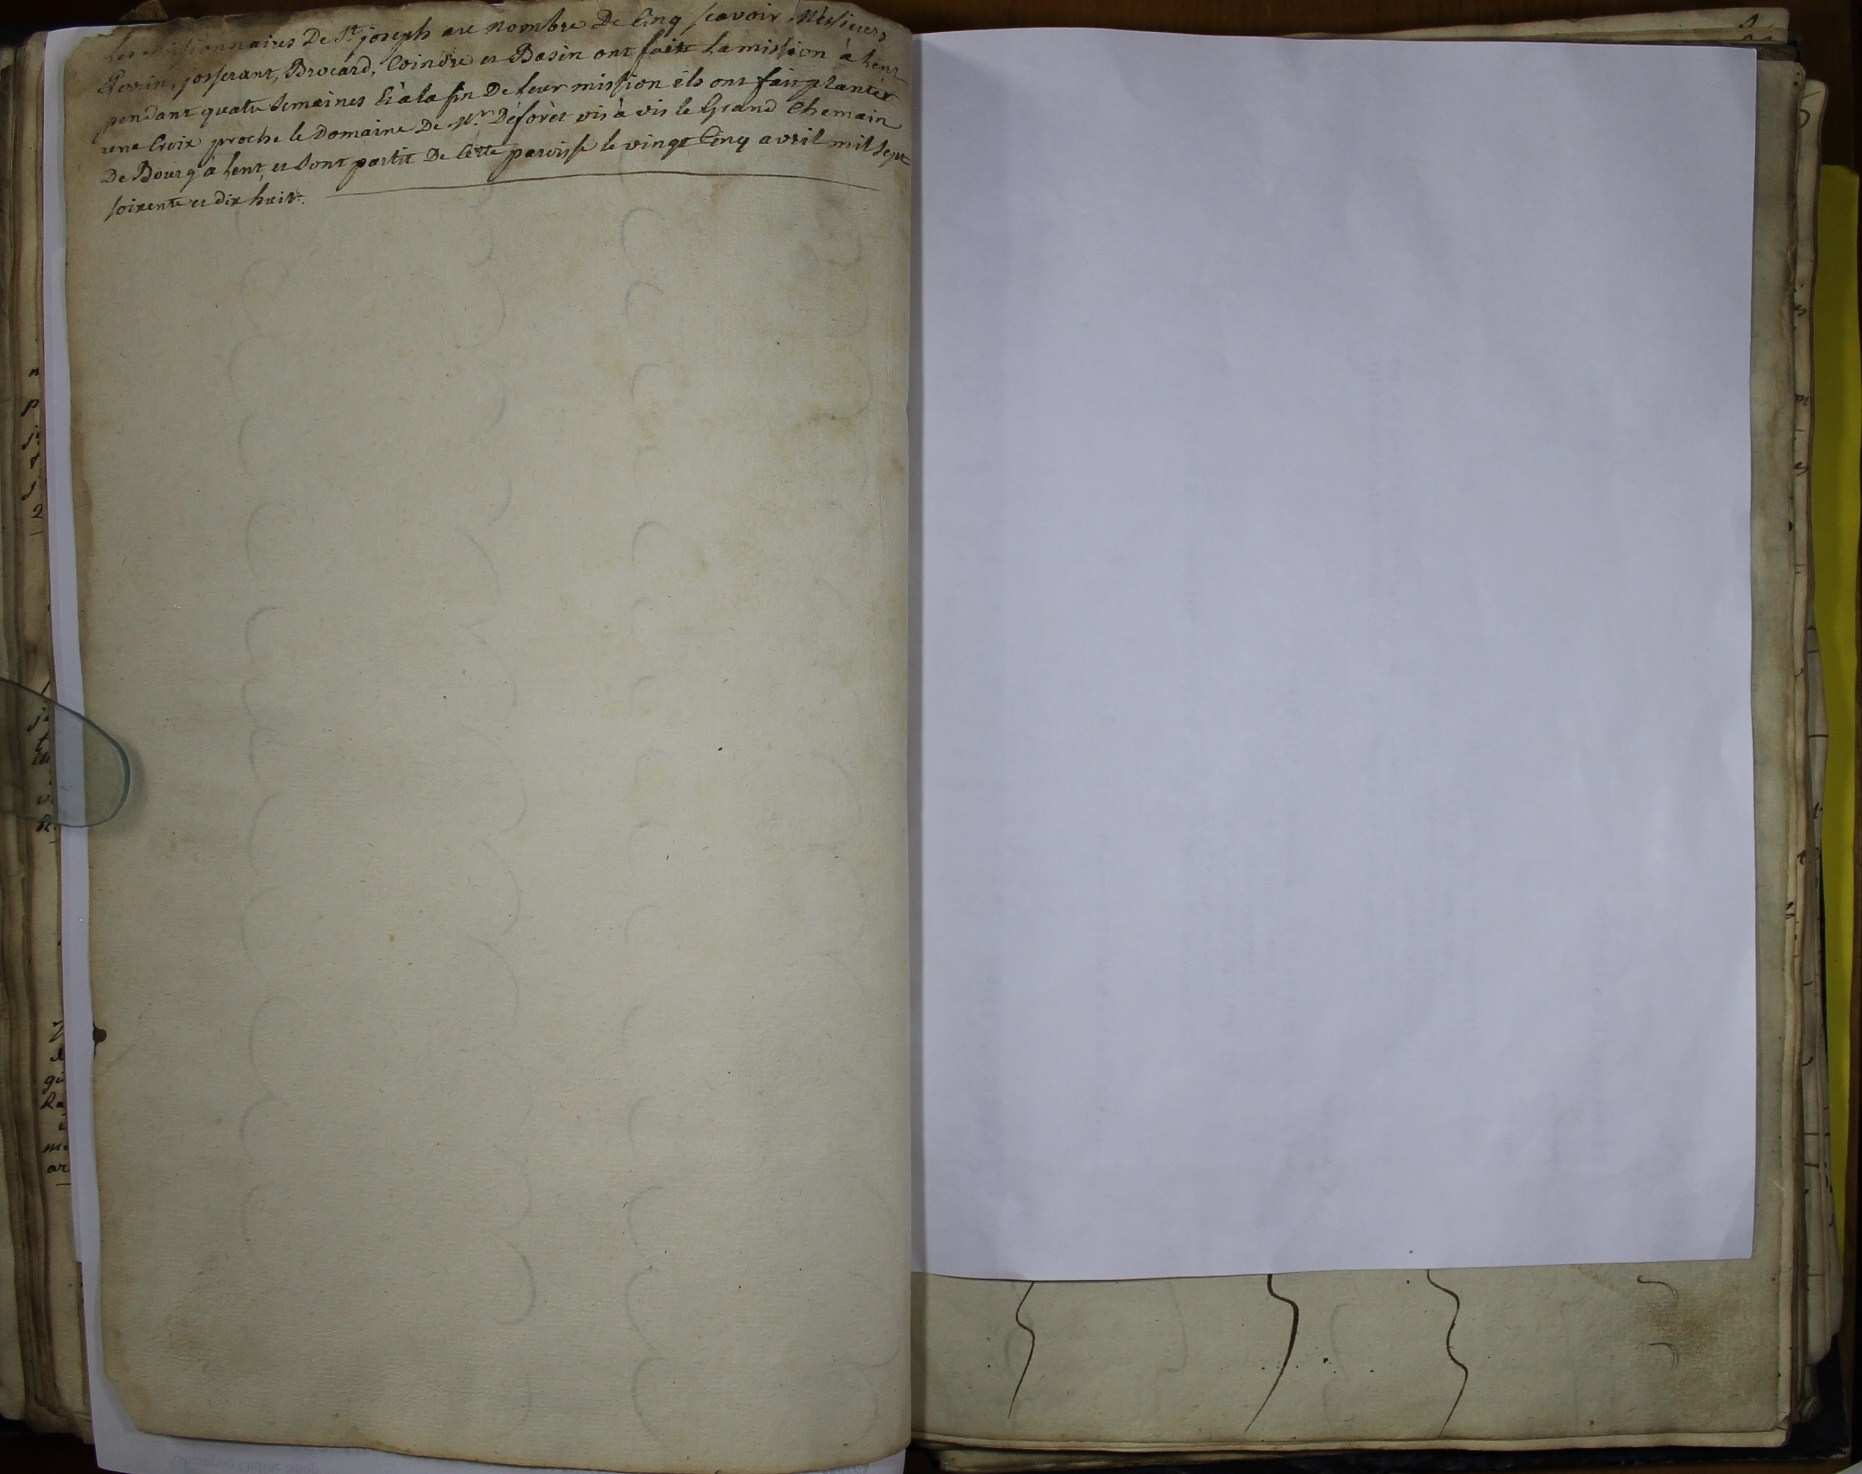 Les Missionnaires De St joseph au nombre De Cinq scavoir Messieurs
josserant, Brocard, Coindre et Basin ont fait La mission à Lent
pendant quatre Semaines Et à la fin De leur mission ils ont fait planter
une Croix proche le Domaine De Mr. Déforèt vis à vis le Grand Chemain
De Bourg à Lent, et sont partit De Cette paroisse le vingt Cinq avril mil sept
soixente et dix huit.